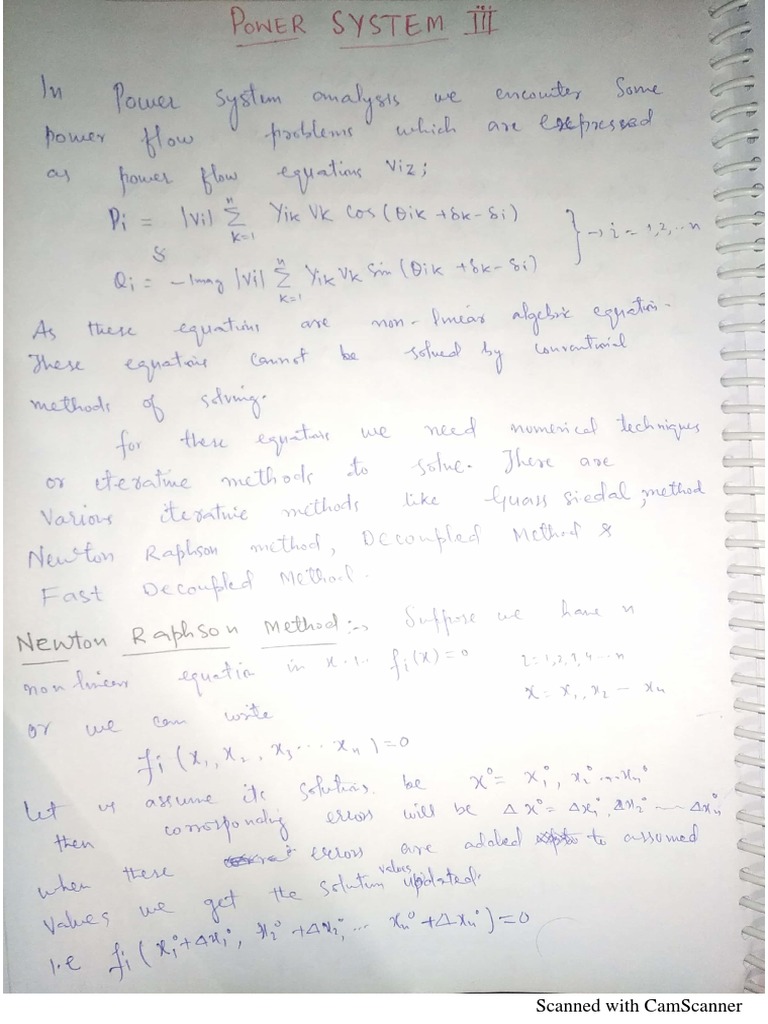 POWER SYSTEM III
In Power system analysis we encounter Some
power flow problems which are expressed
as power flow equations viz;
Pi = |Vi| n Σ k=1 Yik Vk Cos (θik + δk - δi)
&
Qi = - Imag |Vi| n Σ k=1 Yik Vk Sin (θik + δk - δi)
} → i = 1,2,..n
As these equations are non-linear algebric equation.
These equations cannot be solved by conventional
methods of solving.
for these equations we need numerical techniques
or iterative methods to solve. There are
Various iterative methods like Guass Siedal, method
Newton Raphson method, Decoupled Method &
Fast Decoupled Method.
Newton Raphson Method:- Suppose we have n
non linear equation in x i.e. fi(x)=0 i=1,2,3,4...n
x = x1, x2 - xn
or we can write
fi (x1, x2, x3 ... xn)=0
Let us assume its solutions be x° = x1°, x2° ... xn°
then corresponding errors will be Δx° = Δx1°, Δx2° --- Δxn°
when these errors are added to assumed
values we get the solution values updated.
i.e fi (x1°+Δx1°, x2°+Δx2°, ... xn°+Δxn°)=0
Scanned with CamScanner